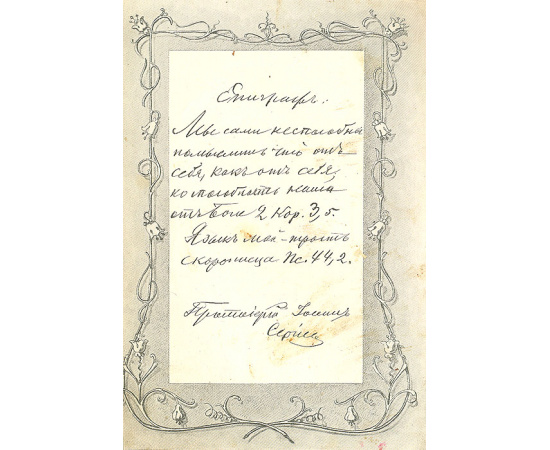 Эпиграфъ:
Мы сами неспособны
помыслить что отъ
себя, какъ отъ себя,
но способность наша
отъ Бога 2 Кор. 3, 5.
Языкъ мой - трость
скорописца Пс. 44, 2.
Протоіерей Іоаннъ
Сергіевъ